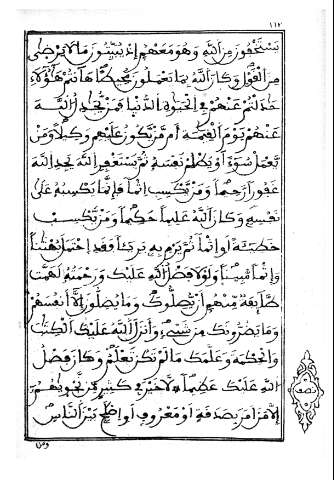 يستخفون من الله وهو معهم إذ يبيتون ما لا يرضى
من القول وكان الله بما يعملون محيطا هأنتم هؤلاء
جدلتم عنهم في الحيوة الدنيا فمن يجدل الله
عنهم يوم القيمة أم من يكون عليهم وكيلا ومن
يعمل سوءا أو يظلم نفسه ثم يستغفر الله يجد الله
غفورا رحيما ومن يكسب إثما فإنما يكسبه على
نفسه وكان الله عليما حكيما ومن يكسب
خطيئة أو إثما ثم يرم به بريئا فقد احتمل بهتنا
وإثما مبينا ولولا فضل الله عليك ورحمته لهمت
طائفة منهم أن يضلوك وما يضلون إلا أنفسهم
وما يضرونك من شيء وأنزل الله عليك الكتب
والحكمة وعلمك ما لم تكن تعلم وكان فضل
الله عليك عظيما لا خير في كثير من نجويهم
إلا من أمر بصدقة أو معروف أو إصلح بين الناس
ومن
نصف